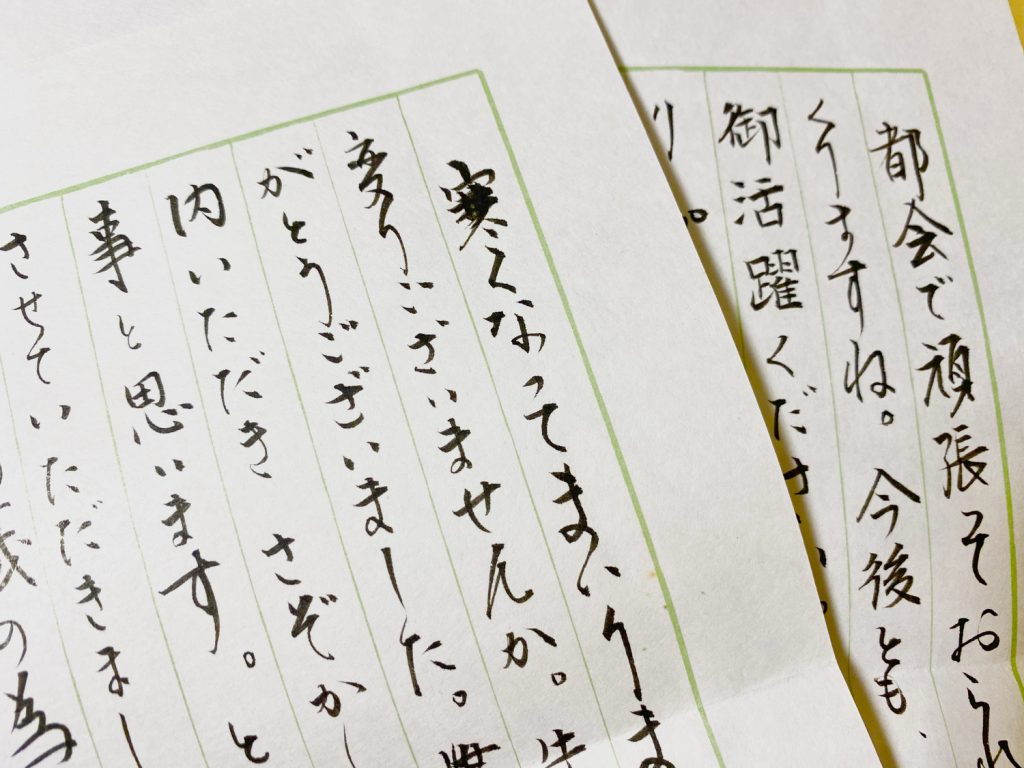 寒くなってまいりま
変りございませんか。
がとうございました。
内いただき さぞかし
事と思います。と
させていただきまし
の為
都会で頑張ておられ
くりますね。今後とも、
御活躍ください。
り